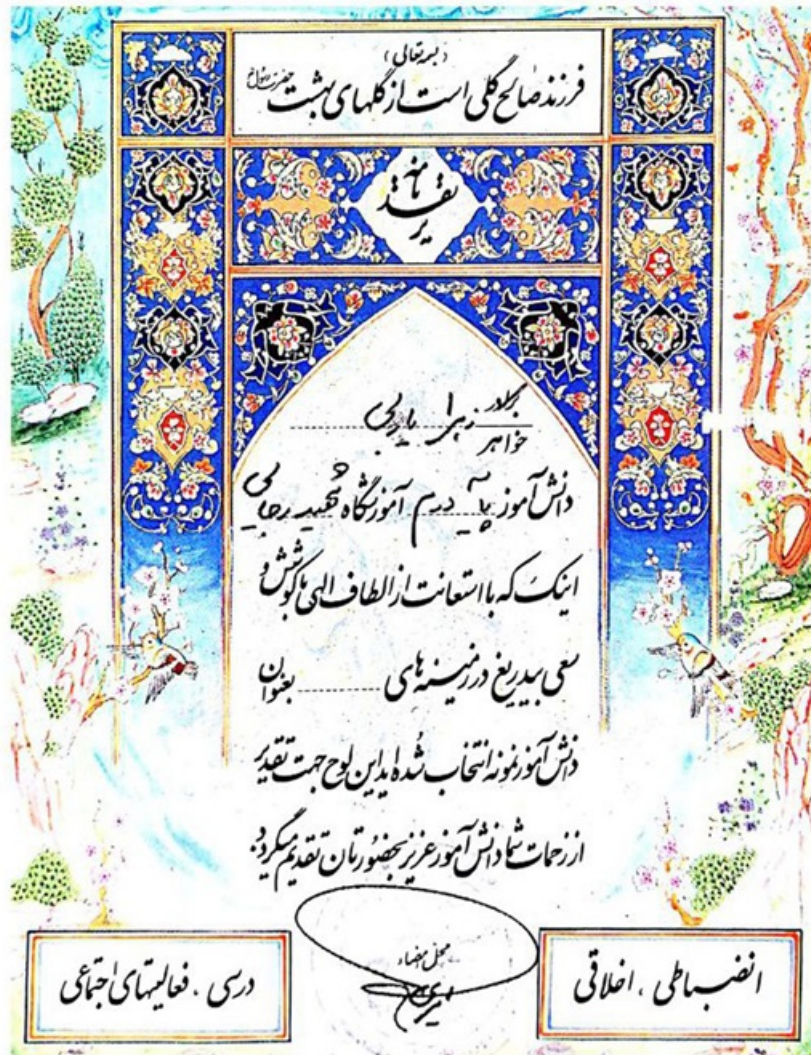 (بسمه تعالی)
فرزند صالح گلی است از گلهای بهشت
تقدیر نامه
برادر
خواهر زهرا
دانش آموز پایه دوم آموزشگاه شهید رجایی
اینک که با استعانت از الطاف الهی با کوشش و
سعی بیدریغ در زمینه های .......... بعنوان
دانش آموز نمونه انتخاب شده اید این لوح جهت تقدیر
از زحمات شما دانش آموز عزیز بحضورتان تقدیم میگردد.
محل امضاء
انضباطی ، اخلاقی
درسی ، فعالیتهای اجتماعی